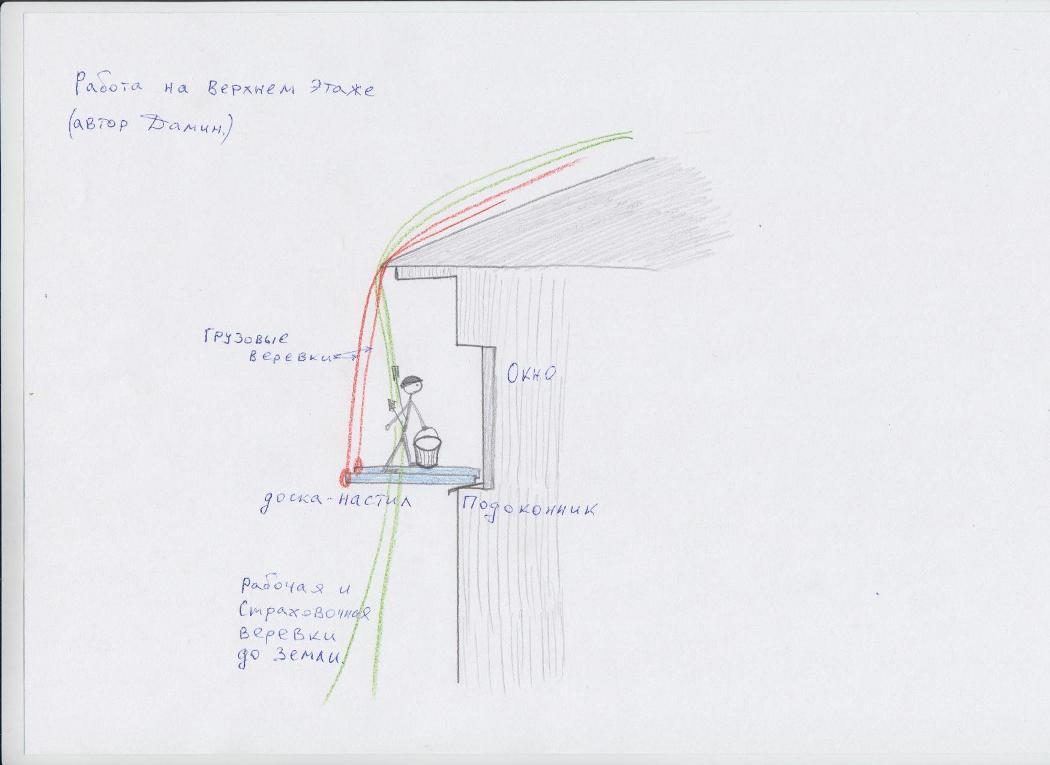 Работа на верхнем этаже
(автор Дамин.)
Грузовые
веревки
Окно
доска-настил
Подоконник
Рабочая и
Страховочная
веревки
до Земли.